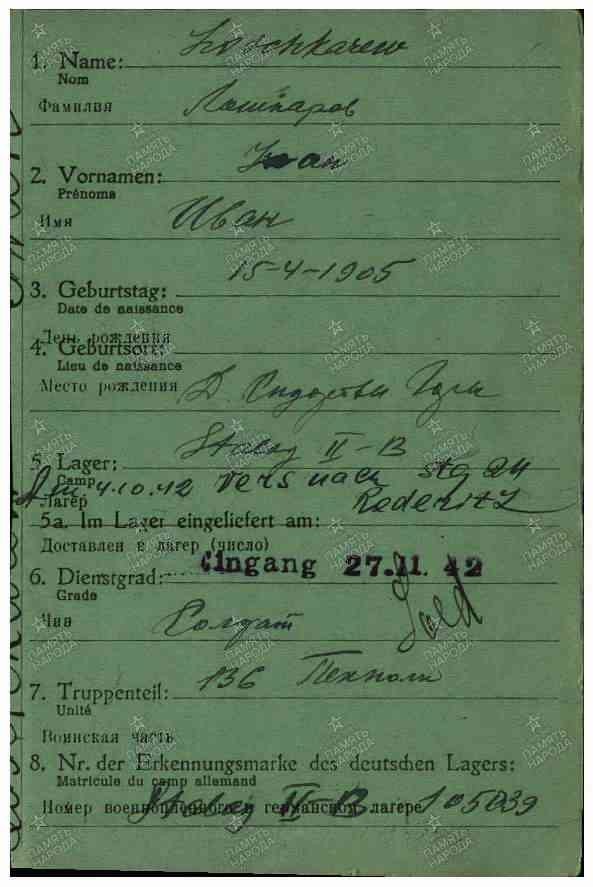 1. Name: Loschkarew
Nom
Фамилия Лошкаров
2. Vornamen: Iwan
Prénoms
Имя Иван
3. Geburtstag: 15-4-1905
Date de naissance
День рождения
4. Geburtsort:
Lieu de naissance
Место рождения Д.
5. Lager: Stalag II-B
Camp
Лагерь
Am 4.10.42 vers nach Stg
Rederitz
5a. Im Lager eingeliefert am:
Доставлен в лагер (число)
Eingang 27.11.42
6. Dienstgrad:
Grade
Чин Солдат
Sold
7. Truppenteil: 136 Пехполк
Unité
Воинская часть
8. Nr. der Erkennungsmarke des deutschen Lagers:
Matricule du camp allemand
Номер военнопленного в германском лагере
Stalag II-B 105039
ПАМЯТЬ НАРОДА